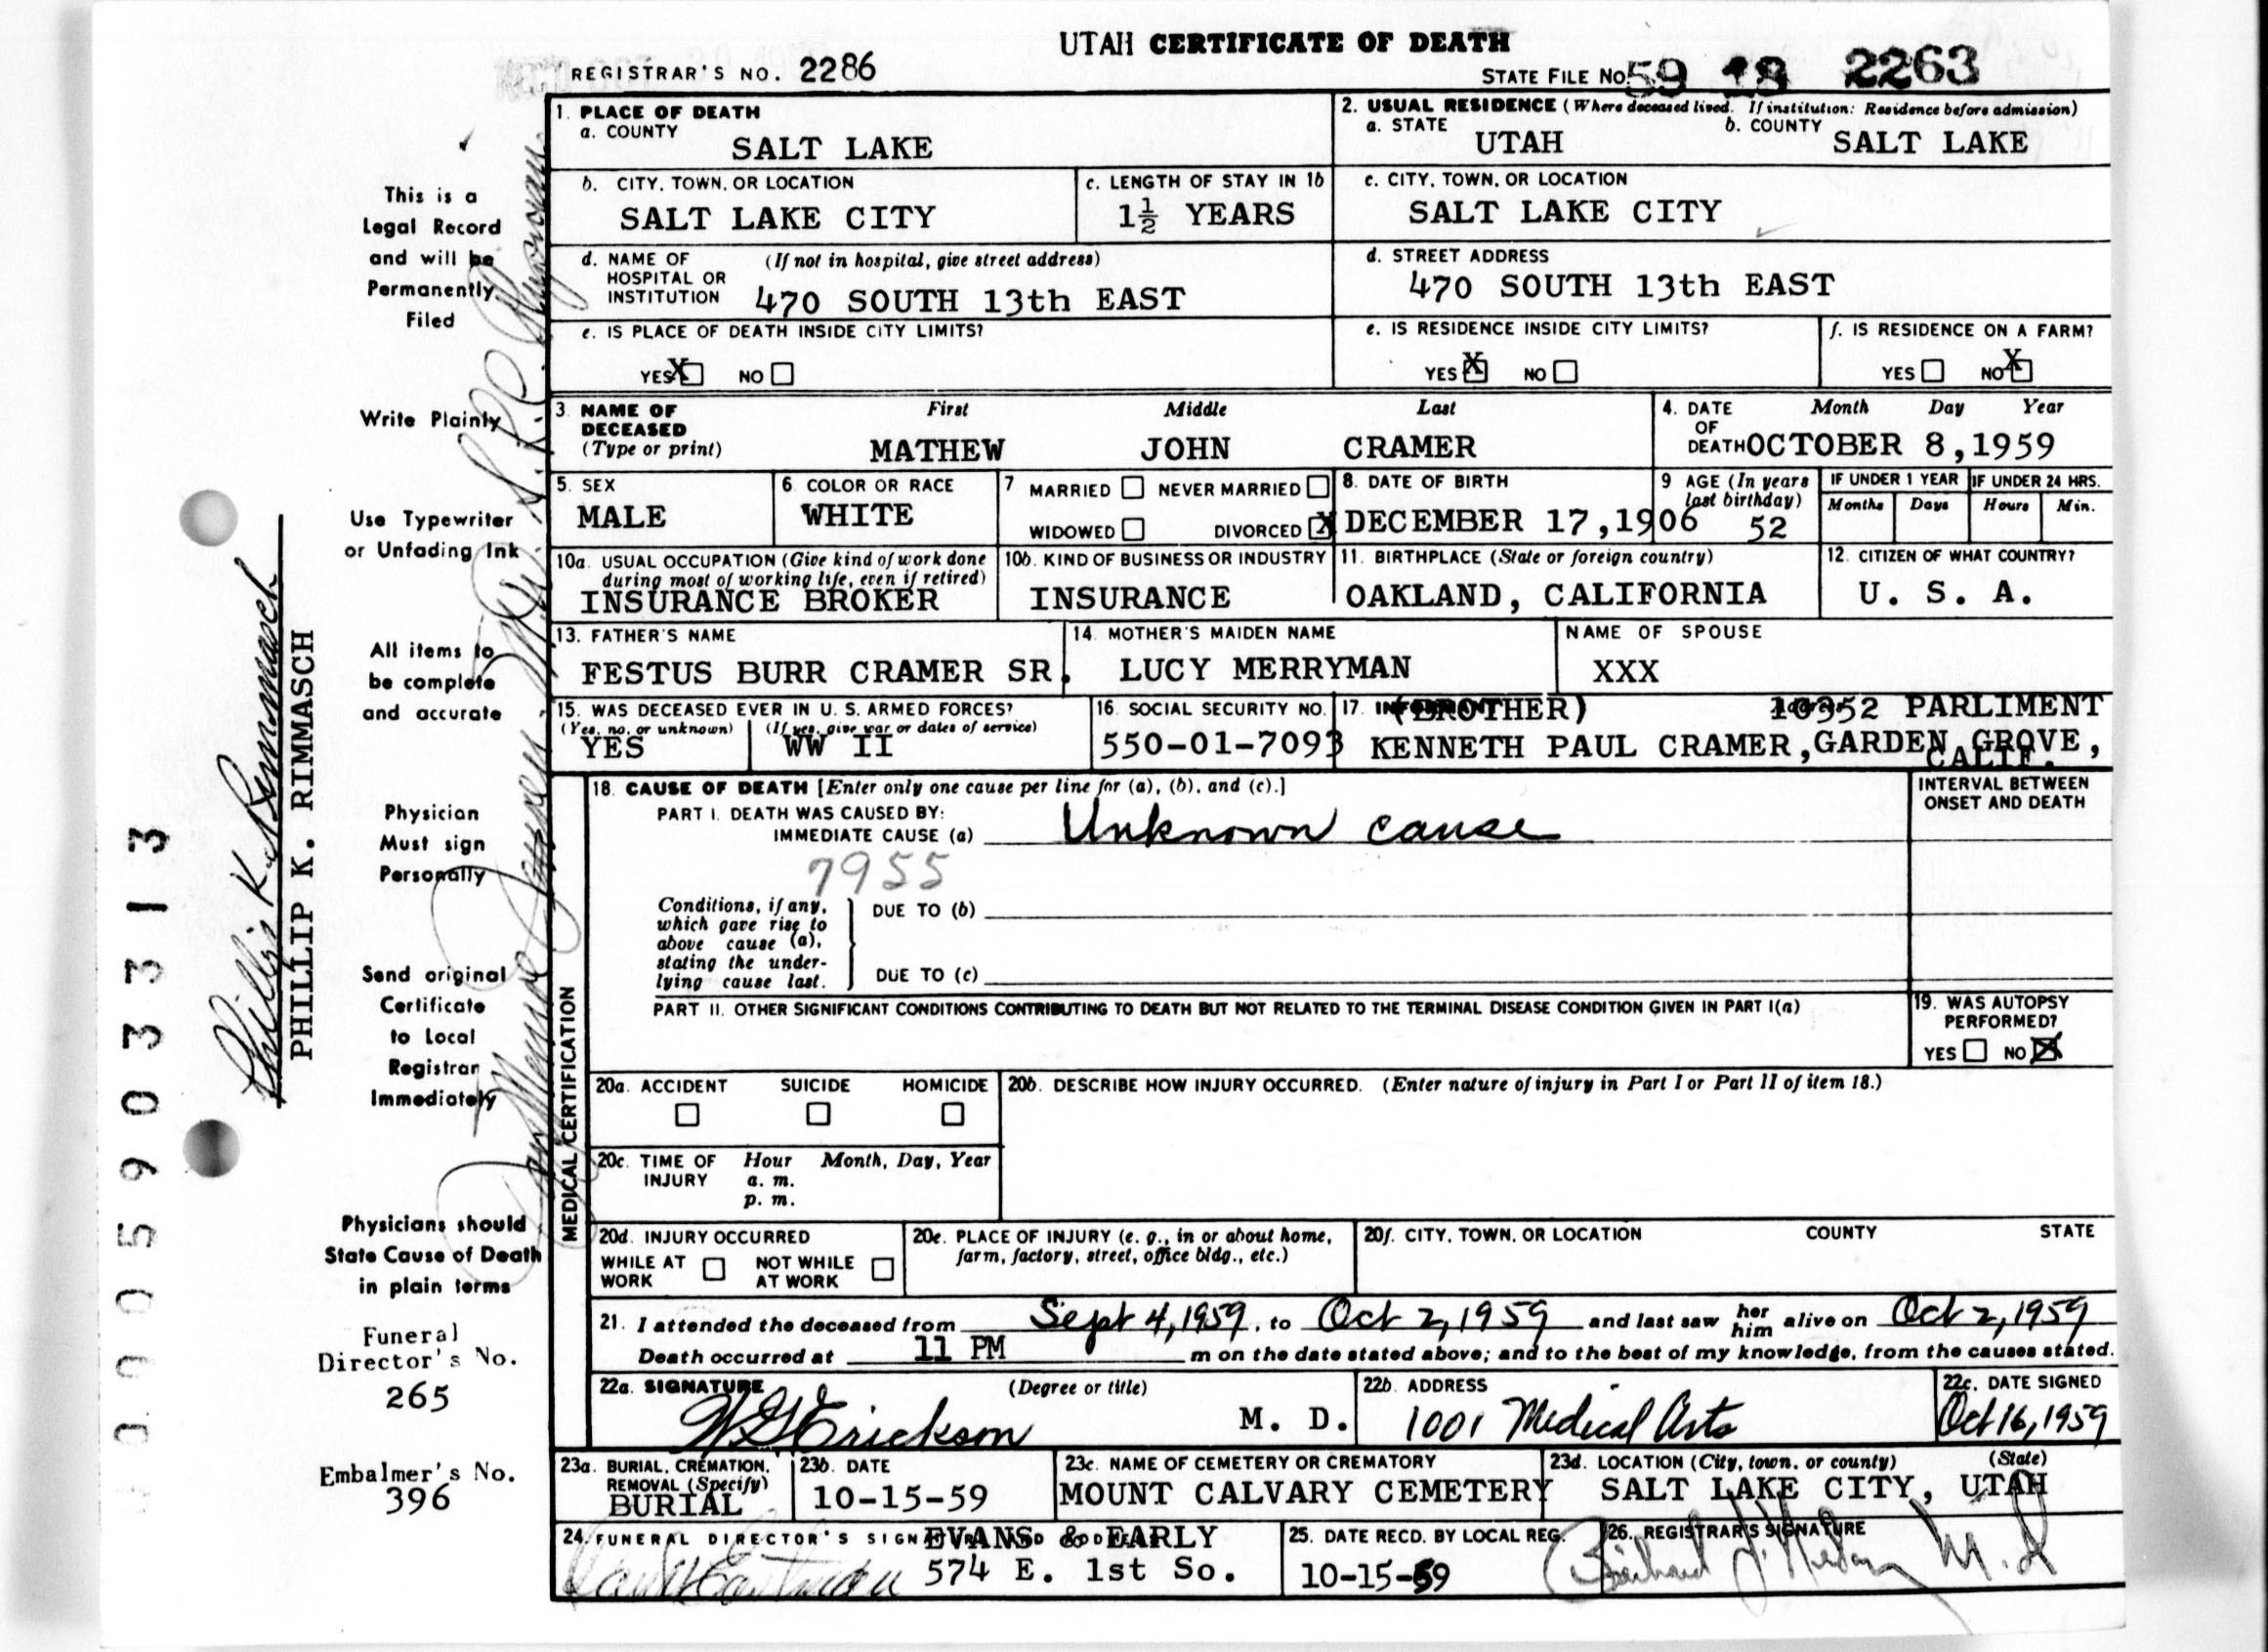 UTAH CERTIFICATE OF DEATH
REGISTRAR'S NO. 2286
STATE FILE NO. 59 18 2263
1. PLACE OF DEATH
a. COUNTY
SALT LAKE
2. USUAL RESIDENCE (Where deceased lived. If institution: Residence before admission)
a. STATE b. COUNTY
UTAH SALT LAKE
b. CITY, TOWN, OR LOCATION
SALT LAKE CITY
c. LENGTH OF STAY IN 1b
1½ YEARS
c. CITY, TOWN, OR LOCATION
SALT LAKE CITY
d. NAME OF (If not in hospital, give street address)
HOSPITAL OR
INSTITUTION 470 SOUTH 13th EAST
d. STREET ADDRESS
470 SOUTH 13th EAST
e. IS PLACE OF DEATH INSIDE CITY LIMITS?
YES X NO
e. IS RESIDENCE INSIDE CITY LIMITS?
YES X NO
f. IS RESIDENCE ON A FARM?
YES NO X
3. NAME OF First Middle Last
DECEASED
(Type or print) MATHEW JOHN CRAMER
4. DATE Month Day Year
OF
DEATH OCTOBER 8,1959
5. SEX
MALE
6. COLOR OR RACE
WHITE
7 MARRIED NEVER MARRIED
WIDOWED DIVORCED X
8. DATE OF BIRTH
DECEMBER 17,1906
9 AGE (In years
last birthday)
52
IF UNDER 1 YEAR IF UNDER 24 HRS.
Months Days Hours Min.
10a. USUAL OCCUPATION (Give kind of work done
during most of working life, even if retired)
INSURANCE BROKER
10b. KIND OF BUSINESS OR INDUSTRY
INSURANCE
11. BIRTHPLACE (State or foreign country)
OAKLAND, CALIFORNIA
12. CITIZEN OF WHAT COUNTRY?
U. S. A.
13. FATHER'S NAME
FESTUS BURR CRAMER SR.
14. MOTHER'S MAIDEN NAME
LUCY MERRYMAN
NAME OF SPOUSE
XXX
15. WAS DECEASED EVER IN U. S. ARMED FORCES?
(Yes, no, or unknown) (If yes, give war or dates of service)
YES WW II
16. SOCIAL SECURITY NO.
550-01-7093
17. (BROTHER) 10352 PARLIMENT
KENNETH PAUL CRAMER, GARDEN GROVE,
CALIF.
MEDICAL CERTIFICATION
18. CAUSE OF DEATH [Enter only one cause per line for (a), (b), and (c).]
PART I. DEATH WAS CAUSED BY:
IMMEDIATE CAUSE (a) Unknown cause
7955
Conditions, if any,
which gave rise to
above cause (a),
stating the under-
lying cause last.
DUE TO (b)
DUE TO (c)
INTERVAL BETWEEN
ONSET AND DEATH
PART II. OTHER SIGNIFICANT CONDITIONS CONTRIBUTING TO DEATH BUT NOT RELATED TO THE TERMINAL DISEASE CONDITION GIVEN IN PART I(a)
19. WAS AUTOPSY
PERFORMED?
YES NO X
20a. ACCIDENT SUICIDE HOMICIDE
20b. DESCRIBE HOW INJURY OCCURRED. (Enter nature of injury in Part I or Part II of item 18.)
20c. TIME OF Hour Month, Day, Year
INJURY a. m.
p. m.
20d. INJURY OCCURRED
WHILE AT NOT WHILE
WORK AT WORK
20e. PLACE OF INJURY (e. g., in or about home,
farm, factory, street, office bldg., etc.)
20f. CITY, TOWN, OR LOCATION COUNTY STATE
21. I attended the deceased from Sept 4, 1959, to Oct 2, 1959 and last saw her him alive on Oct 2, 1959
Death occurred at 11 PM m on the date stated above; and to the best of my knowledge, from the causes stated.
22a. SIGNATURE (Degree or title)
W G Erickson M. D.
22b. ADDRESS
1001 Medical Arts
22c. DATE SIGNED
Oct 16, 1959
23a. BURIAL, CREMATION,
REMOVAL (Specify)
BURIAL
23b. DATE
10-15-59
23c. NAME OF CEMETERY OR CREMATORY
MOUNT CALVARY CEMETERY
23d. LOCATION (City, town, or county) (State)
SALT LAKE CITY, UTAH
24. FUNERAL DIRECTOR'S EVANS & EARLY
574 E. 1st So.
25. DATE RECD. BY LOCAL REG.
10-15-59
26. REGISTRAR'S SIGNATURE
M.D
This is a
Legal Record
and will be
Permanently
Filed
Write Plainly
Use Typewriter
or Unfading Ink
All items to
be complete
and accurate
Physician
Must sign
Personally
Send original
Certificate
to Local
Registrar
Immediately
Physicians should
State Cause of Death
in plain terms
Funeral
Director's No.
265
Embalmer's No.
396
Phillip K. Rimmasch
PHILLIP K. RIMMASCH